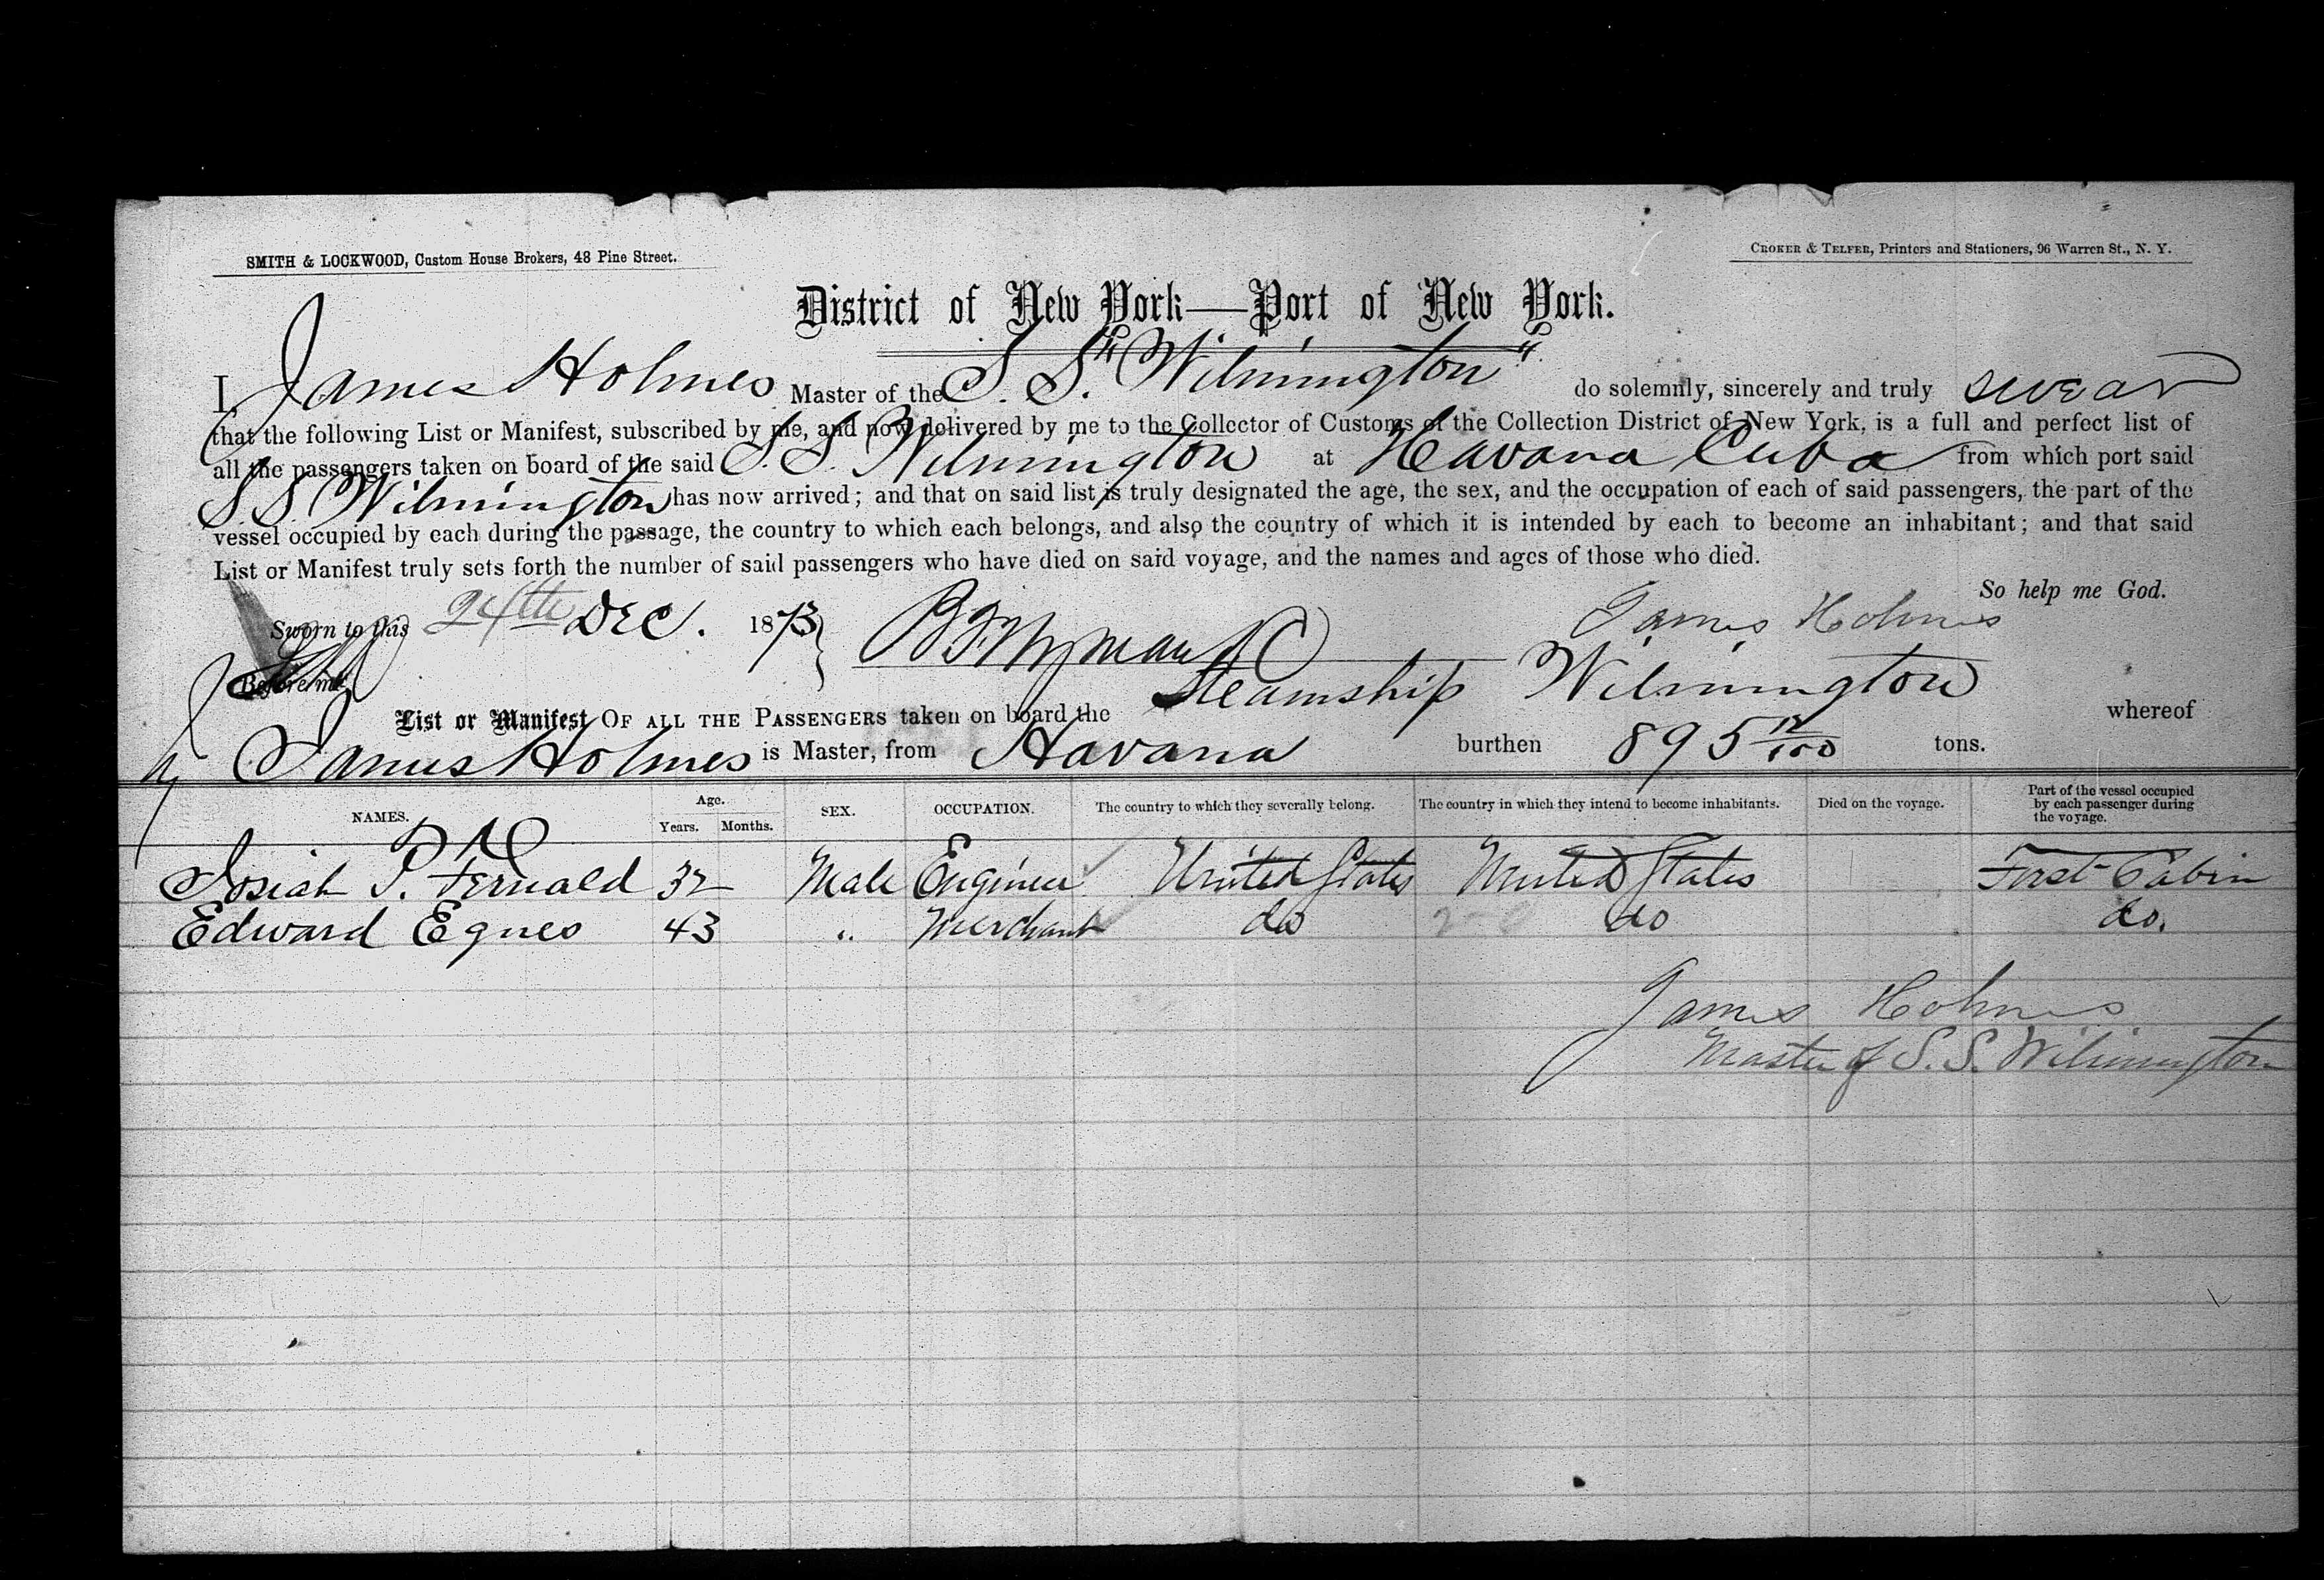 SMITH & LOCKWOOD, Custom House Brokers, 48 Pine Street.
CROKER & TELFER, Printers and Stationers, 96 Warren St., N. Y.
District of New York—Port of New York.
I, James Holmes Master of the S. S. "Wilmington" do solemnly, sincerely and truly swear
that the following List or Manifest, subscribed by me, and now delivered by me to the Collector of Customs of the Collection District of New York, is a full and perfect list of
all the passengers taken on board of the said S. S. Wilmington at Havana Cuba from which port said
S. S. Wilmington has now arrived; and that on said list is truly designated the age, the sex, and the occupation of each of said passengers, the part of the
vessel occupied by each during the passage, the country to which each belongs, and also the country of which it is intended by each to become an inhabitant; and that said
List or Manifest truly sets forth the number of said passengers who have died on said voyage, and the names and ages of those who died.
So help me God.
Sworn to this 24th Dec. 1873 James Holmes
Before me
List or Manifest OF ALL THE PASSENGERS taken on board the Steamship Wilmington whereof
James Holmes is Master, from Havana burthen 895 12/100 tons.
NAMES. Age. Years. Months. SEX. OCCUPATION. The country to which they severally belong. The country in which they intend to become inhabitants. Died on the voyage. Part of the vessel occupied by each passenger during the voyage.
Josiah P. Fernald 32 Male Engineer United States United States First Cabin
Edward Egnes 43 " Merchant do do do.
James Holmes
Master of S. S. Wilmington